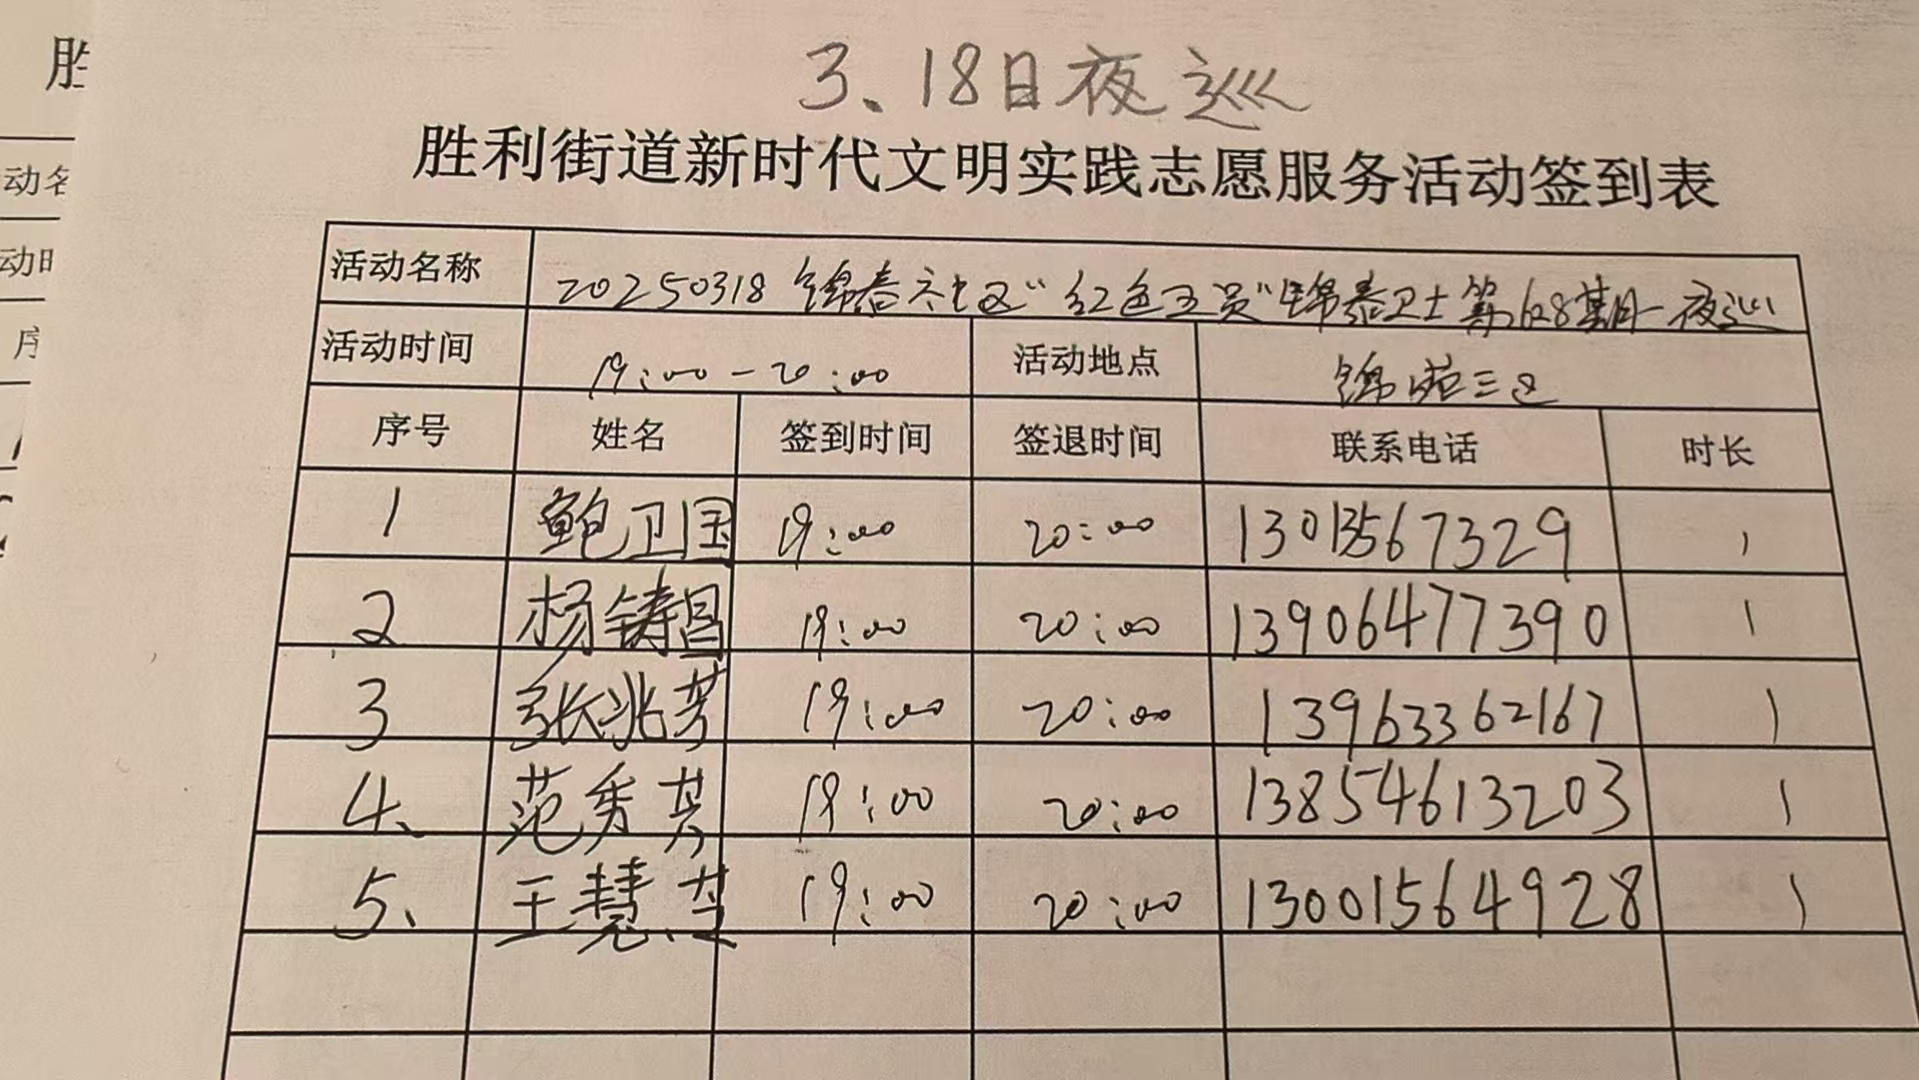 胜
3、18日夜巡
胜利街道新时代文明实践志愿服务活动签到表
动名
活动名称 20250318锦春社区“红色 员”锦泰卫士第628期—夜巡
动时
活动时间 19:00-20:00 活动地点 锦苑三区
序
序号 姓名 签到时间 签退时间 联系电话 时长
1 鲍卫国 19:00 20:00 13013567329 1
2 杨铸昌 19:00 20:00 13906477390 1
3 张兆芳 19:00 20:00 13963362167 1
4、 范秀英 19:00 20:00 13854613203 1
5、 王慧英 19:00 20:00 13001564928 1